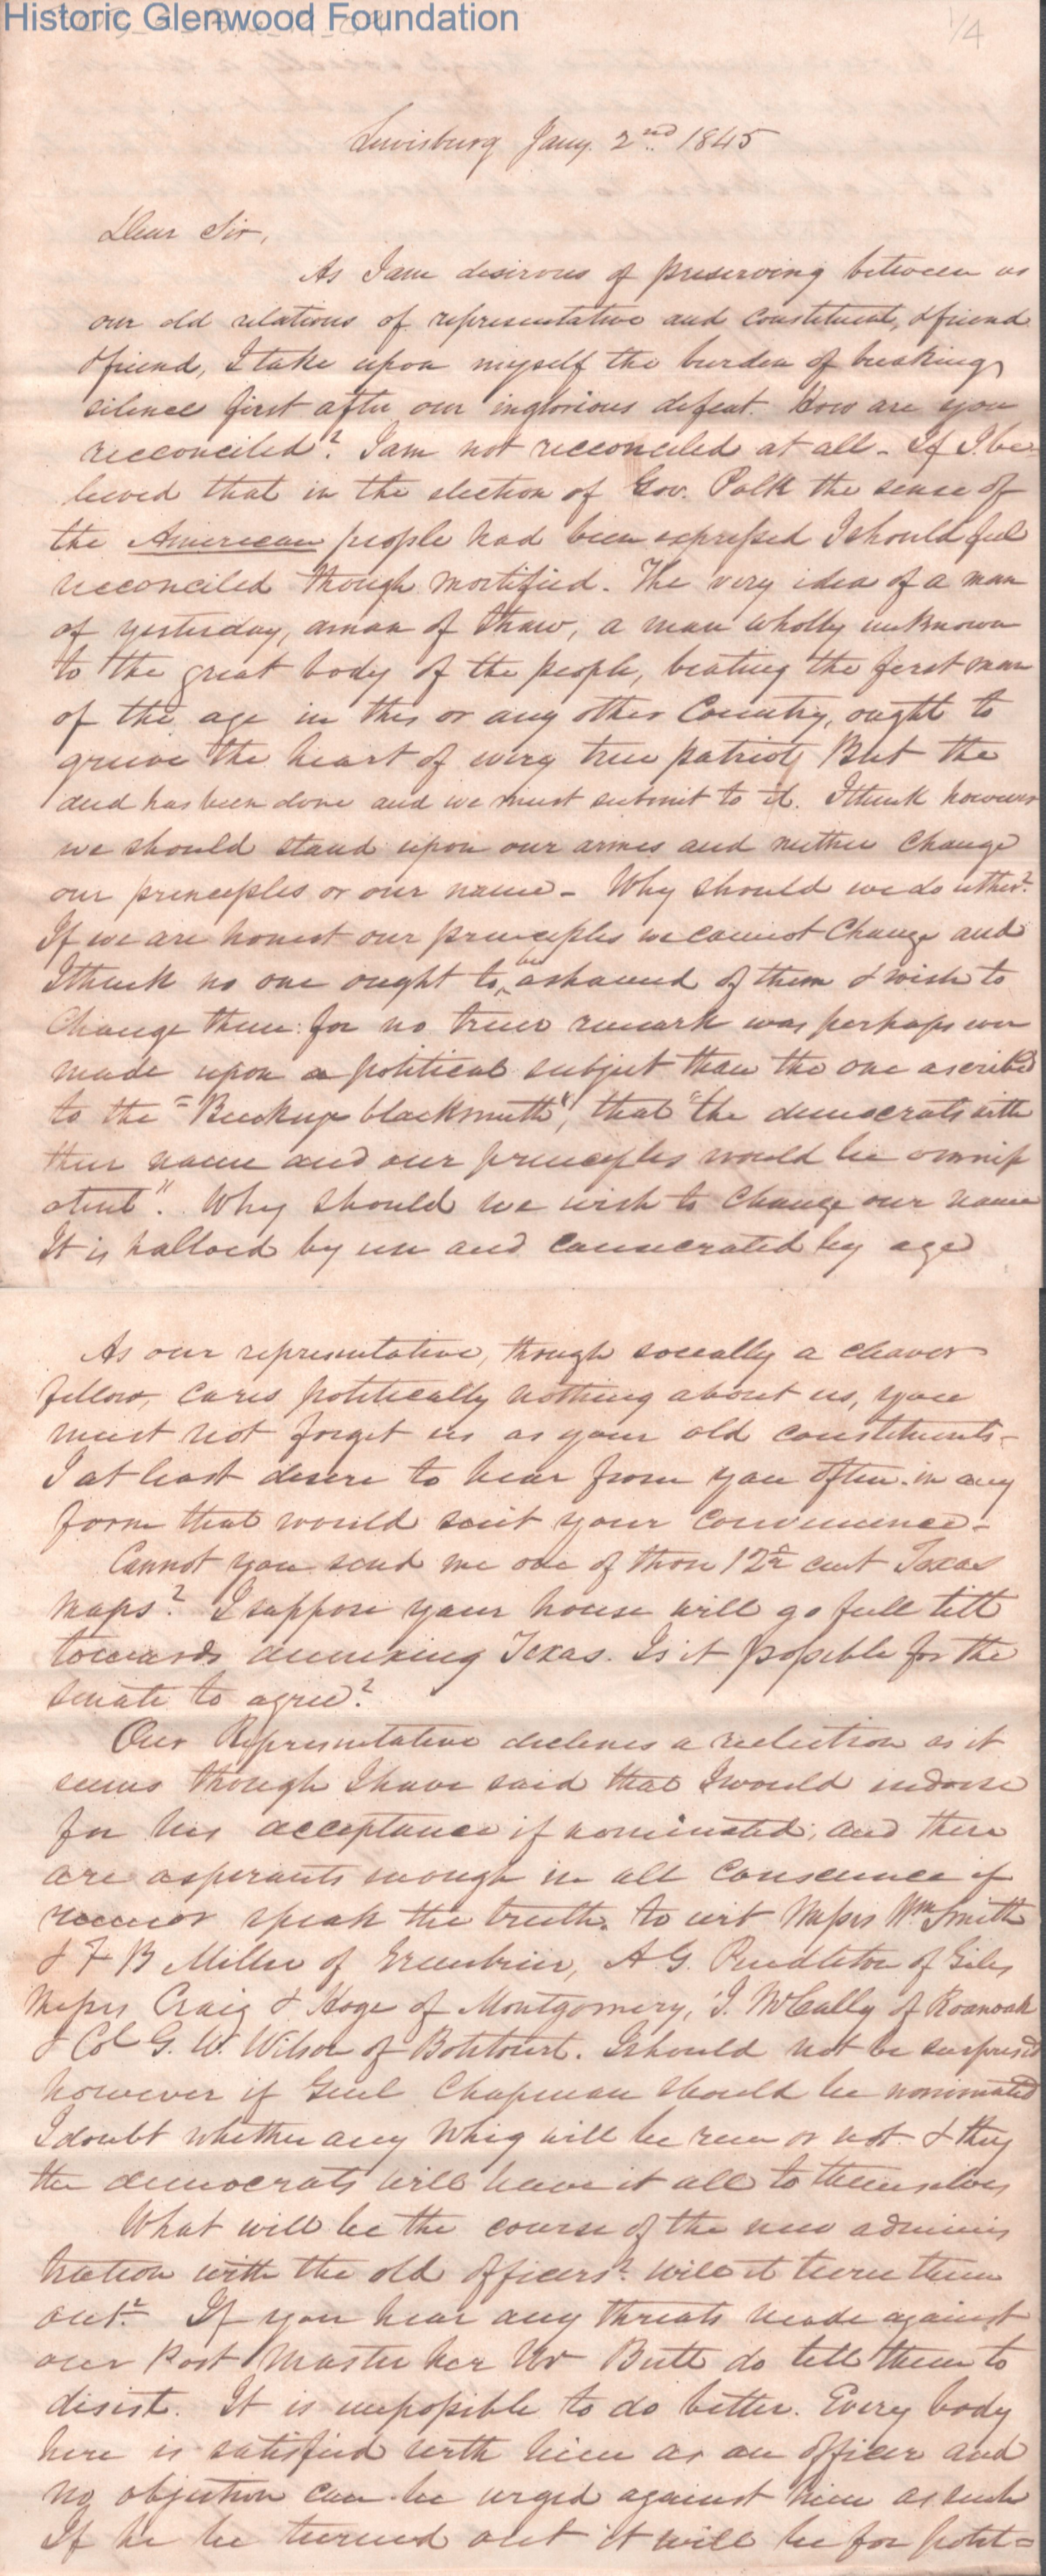 Historic Glenwood Foundation
1/4
Lewisburg Jany. 2nd 1845
Dear Sir,
As I am desirous of preserving between us
our old relations of representative and constituent, & friend
& friend, I take upon myself the burden of breaking
silence first after our inglorious defeat. How are you
recconciled? I am not recconciled at all - If I be-
lieved that in the election of Gov. Polk the sense of
the American people had been expressed I should feel
recconciled though mortified. The very idea of a man
of yesterday, a man of straw, a man wholly unknown
to the great body of the people, beating the first man
of the age in this or any other Country, ought to
grieve the heart of every true patriot, But the
deed has been done and we must submit to it. I think however
we should stand upon our armes and neither change
our principles or our name - Why should we do either?
If we are honest our principles we cannot change and
I think no one ought to be ashamed of them & wish to
change them: for no truer remark was perhaps ever
made upon a political subject than the one ascribed
to the "Buckeye blacksmith", that "the democrats with
their name and our principles would be omnip
otent". Why should we wish to change our name
It is hallowed by use and consecrated by age
As our representative, though socially a cleaver
fellow, cares politically nothing about us, you
must not forget us as your old constituents -
I at least desire to hear from you often in any
form that would suit your convenience -
Cannot you send me one of those 12½ cent Texas
maps? I suppose your house will go full tilt
towards annexing Texas. Is it possible for the
senate to agree?
Our Representative declines a reelection as it
seems though I have said that I would indorse
for his acceptance if nominated; and there
are aspirants enough in all conscience if
rumor speak the truth, to wit Messrs Wm Smith
& F B Miller of Greenbrier, A G. Pendleton of Giles
Messrs Craig & Hoge of Montgomery, J. McCally of Roanoak
& Col G. W. Wilson of Bottourt. I should not be surprised
however if Genl Chapman should be nominated
I doubt whether any Whig will be run or not & they
the democrats will have it all to themselves
What will be the course of the new adminis
tration with the old officers? will it turn them
out? If you hear any threats made against
our Post Master here Mr Butt do tell them to
desist. It is impossible to do better. Every body
here is satisfied with him as an officer and
no objection can be urged against him as such
If he be turned out it will be for polit=